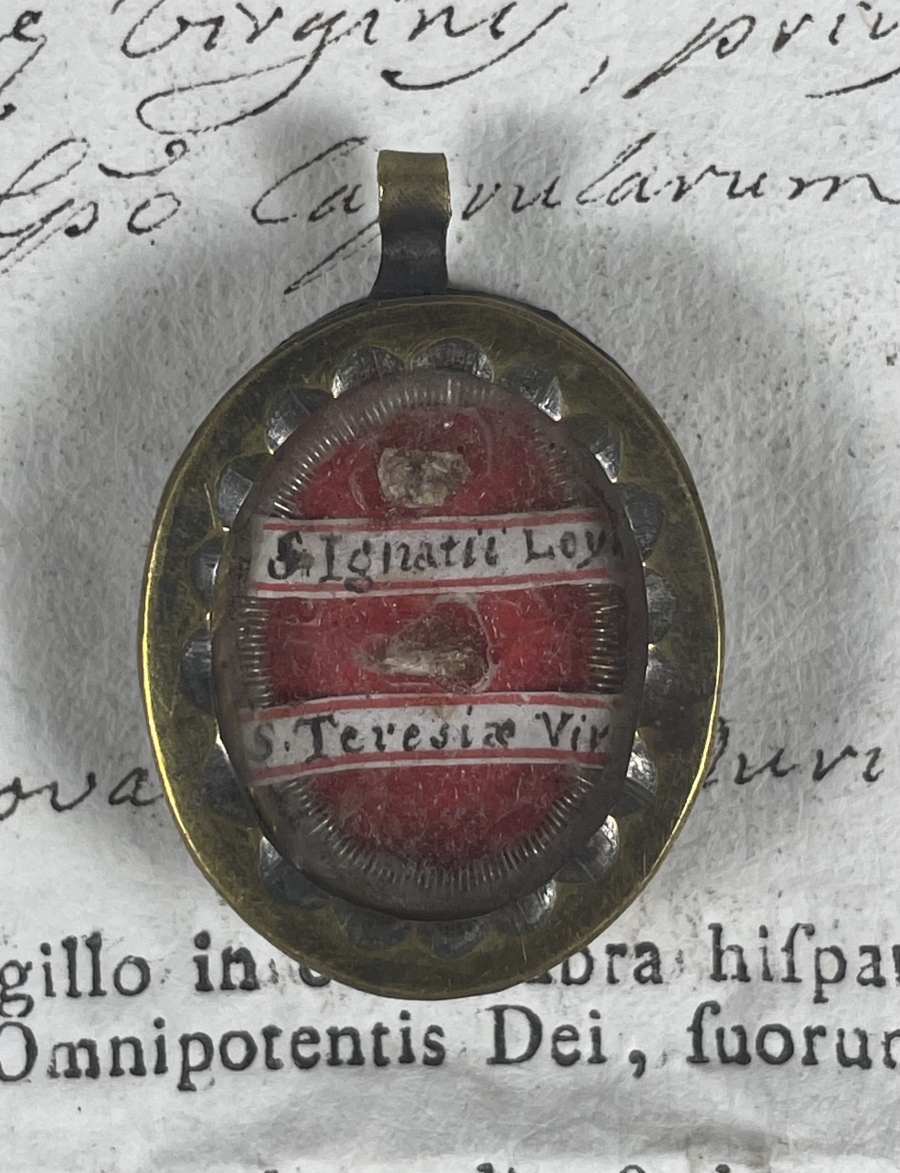 Virginis, priv
Capsularum
S. Ignatii Loy
S. Teresiæ Vir
gillo in hiſpa
Omnipotentis Dei, ſuorum